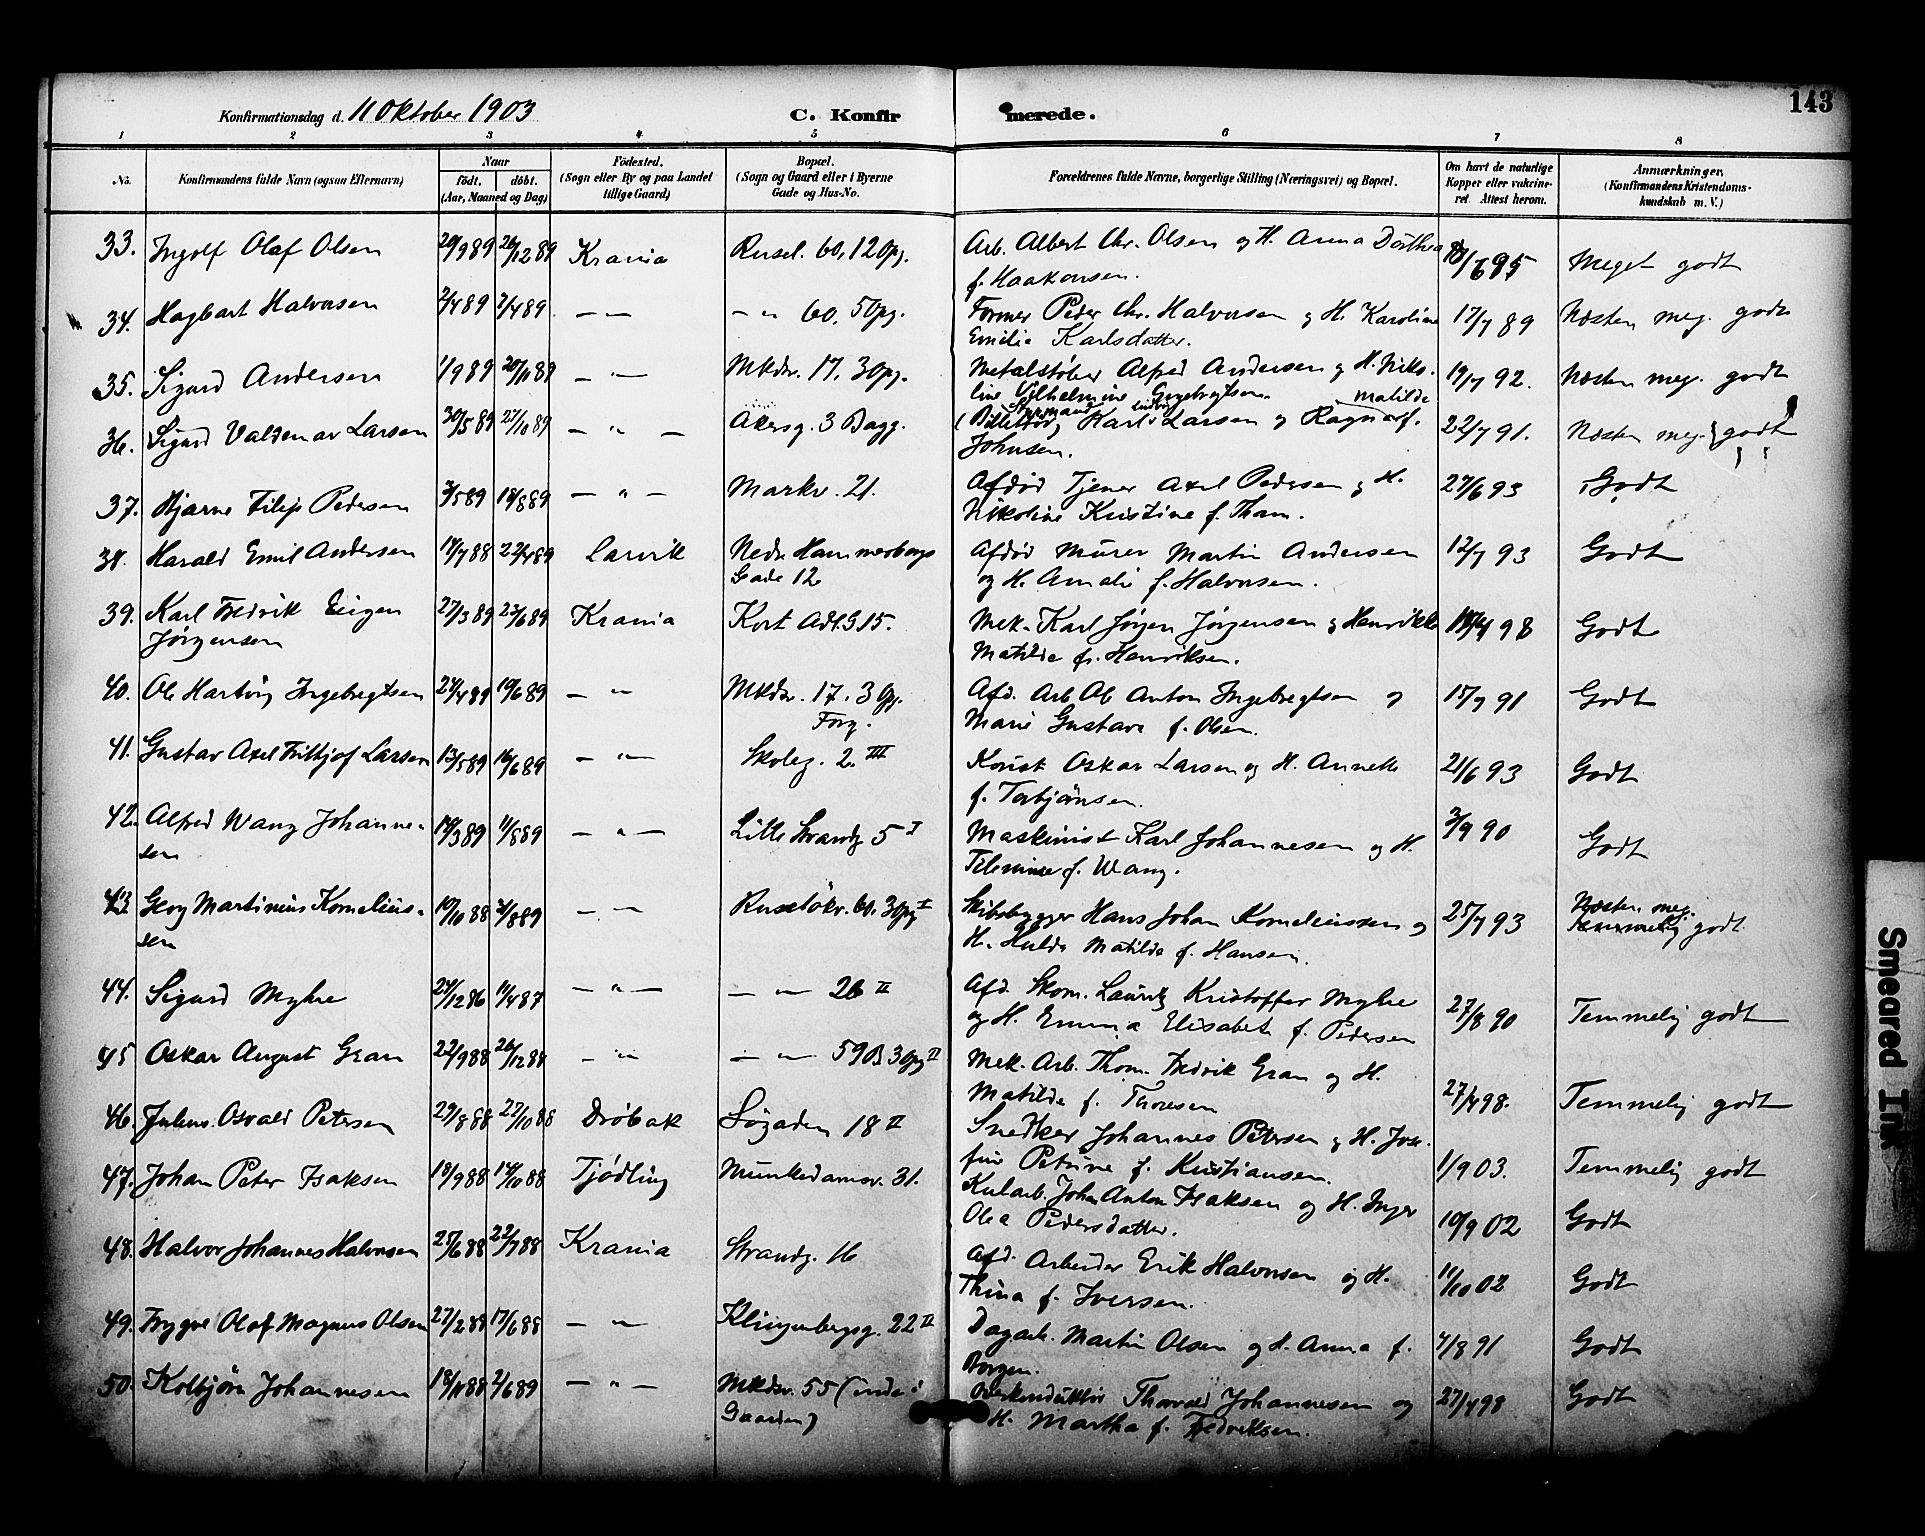 Konfirmationsdag d. 11 Oktober 1903
C. Konfirmerede.
143
1 2 3 4 5 6 7 8
No.
Konfirmandens fulde Navn (ogsaa Efternavn)
Naar
födt, döbt.
(Aar, Maaned og Dag)
Födested.
(Sogn eller By og paa Landet
tillige Gaard)
Bopæl.
(Sogn og Gaard eller i Byerne
Gade og Hus-No.
Forældrenes fulde Navne, borgerlige Stilling (Næringsvei) og Bopæl.
Om havt de naturlige
Kopper eller vakcine-
ret. Attest herom.
Anmærkninger,
(Konfirmandens Kristendoms-
kundskab m. V.)
33. Ingolf Olaf Olsen 20/9 89 26/12 89 Krania Rusel. 60, 12 Opg. Arb. Albert Chr. Olsen og H. Anna Dorthea 18/6 95 Meget godt
f. Haakonsen.
34. Hagbart Halvorsen 2/4 89 – " – – " 60, 5 Opg. Former Peder Chr. Halvorsen og H. Karoline 17/7 89 Næsten meg. godt
Emilie Karlsdatter.
35. Sigurd Andersen 1/9 89 20/11 89 – " – Mkdv. 17, 3 Opg. Metalstøber Alfred Andersen og H. 19/7 92. Næsten meg. godt
line Vilhelmine Ingebregtsen.
36. Sigurd Valdemar Larsen 30/5 89 27/10 89 – " – Akersg. 3 Bagg. Styrmand Karl Ludvig Larsen og Ragna Matilde f. 22/7 91. Næsten meg. godt
Johnsen.
37. Bjarne Filip Pedersen 3/5 89 18/8 89 – " – Markv. 21. Afdød Tjener Axel Pedersen og H. 27/6 93 Godt
Nikoline Kristine f. Tham.
38. Harald Emil Andersen 17/7 88 22/4 89 Larvik Nedre Hammersborg Afdød Murer Martin Andersen 12/7 93 Godt
Gade 12
og H. Amalie f. Halvorsen.
39. Karl Fredrik Eugen 27/3 89 23/6 89 Krania Kort Adl. G 15. Mek. Karl Jörgen Jörgensen og Henrikke 98 Godt
Jørgensen
Matilde f. Henriksen.
40. Ole Hartvig Ingebregtsen 24/4 89 19/6 89 – " Mkdv. 17. 3 Opg. Afd. Arb. Ole Anton Ingebregtsen og 15/7 91 Godt
Forg.
Marie Gustava f. Olsen.
41. Gustav Axel Fritjof Larsen 13/5 89 16/6 89 – " – Skoleg. 2. III Konst Oskar Larsen og H. Annette 21/6 93 Godt
f. Torbjørnsen.
42. Alfred Wang Johanne- 14/3 89 11/8 89 – " – Lille Strandg 5 I Maskinist Karl Johannesen og H. 3/9 90 Godt
sen
f. Wang.
43. Georg Martinius Kornelius- 10/10 88 4/8 89 – " – Ruseløkv. 60. 3 Opg I Skibsbygger Hans Johan Korneliussen og 25/7 93 Næsten meg.
sen
H. Hulda Matilde f. Hansen.
Temmelig godt
44. Sigurd Myhre 24/12 86 11/4 87 – " – – " – 26 II Afd. Skom. Lauritz Kristoffer Myhre 27/8 90 Temmelig godt
og H. Emma Elisabet f. Pedersen
45 Oskar August Gran 22/9 88 26/12 88 – " – " – 59 B 3 Opg II Mek. Arb. Thom. Fredrik Gran og H. 27/4 98. Temmelig godt
Matilde f. Thoresen
46. Julius Osvald Petersen 29/8 88 27/10 88 Dröbak Søgaden 18 II Snedker Johannes Petersen og H. Jose-
fine Petrine f. Kristiansen. 1/9 03. Temmelig godt
47. Johan Peter Isaksen 18/9 88 14/10 88 Tjödling Munkedamsv. 31. Kularb. Johan Anton Isaksen og H. Inger
Olea Pedersdatter. 10/9 02 Godt
48. Halvor Johannes Halvorsen 25/6 88 22/7 88 Krania Strandg. 16 Afd. Arbeider Erik Halvorsen og H. 11/10 02 Godt
Thina f. Iversen.
49. Trygve Olaf Magnus Olsen 27/2 88 17/6 88 – " – Klingenbergsg. 22 II Dagarb. Martin Olsen og H. Anna f. 4/8 91 Godt
Borgen.
50. Kolbjörn Johannesen 18/11 88 2/6 89 – " – Mkdv. 55 (inde i Overkonduktör Thorvald Johannesen og 27/4 98 Godt
Gaarden)
H. Martha f. Fredriksen.
Smeared Ink